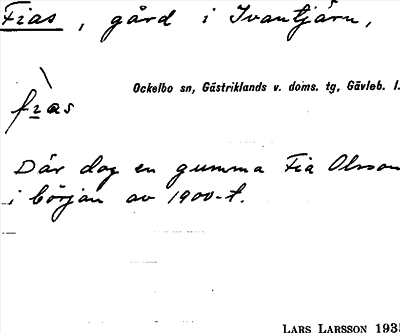 Fias, gård i Ivantjärn,
Ockelbo sn, Gästriklands v. doms. tg, Gävleb. l.
fias
Där dog en gumma Fia Olsson
i början av 1900-t.
LARS LARSSON 193